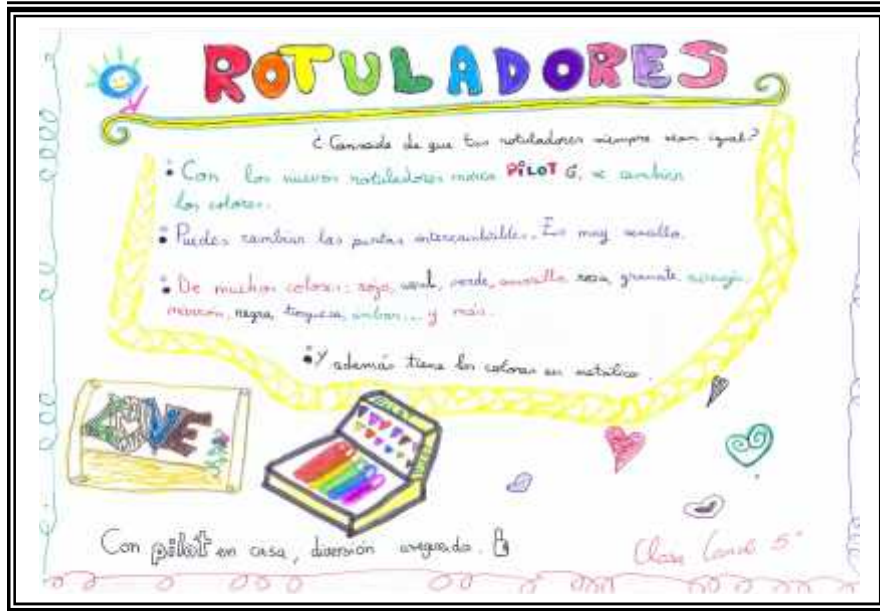 ROTULADORES
¿Cansado de que tus rotuladores siempre sean igual?
Con los nuevos rotuladores marca PILOT G, se cambian
los colores.
Puedes cambiar las puntas intercambibles. Es muy sencillo.
De muchos colores: rojo, azul, verde, amarillo, rosa, granate, naranja,
marrón, negra, turquesa, ambar... y más.
Y además tiene los colores en metálico.
LOVE
Con pilot en casa, diversión asegurada.
Clara 5º